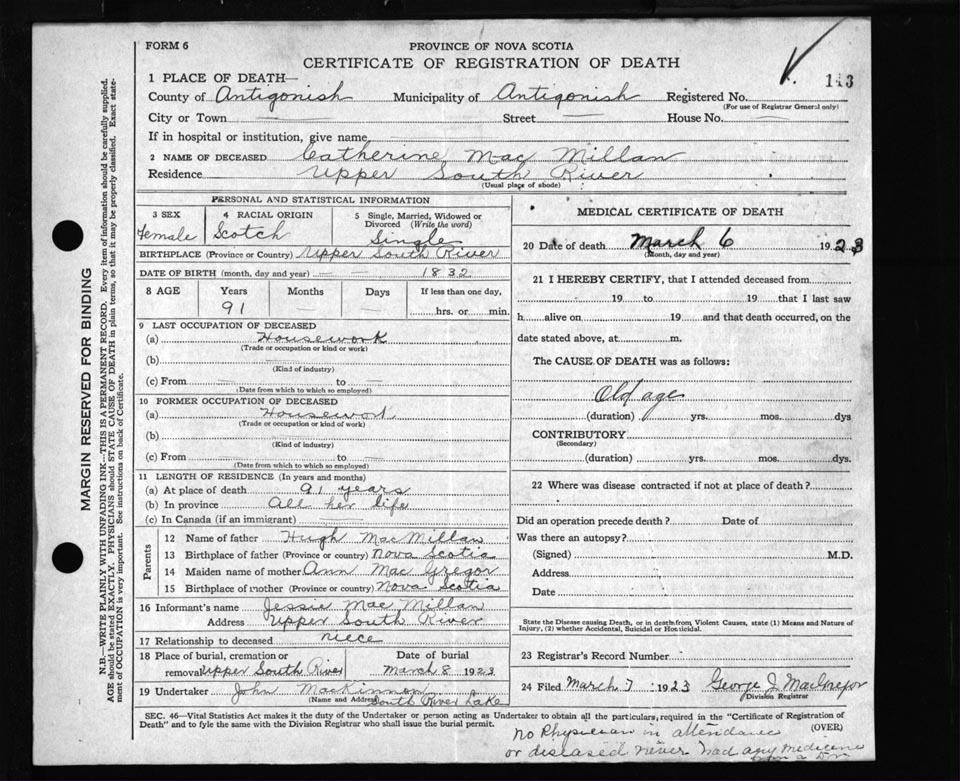 FORM 6
PROVINCE OF NOVA SCOTIA
CERTIFICATE OF REGISTRATION OF DEATH
143
1 PLACE OF DEATH—
County of Antigonish Municipality of Antigonish Registered No.
(For use of Registrar General only)
City or Town — Street — House No. —
If in hospital or institution, give name —
2 NAME OF DECEASED Catherine Mac Millan
Residence Upper South River
(Usual place of abode)
PERSONAL AND STATISTICAL INFORMATION
3 SEX Female
4 RACIAL ORIGIN Scotch
5 Single, Married, Widowed or Divorced (Write the word) Single
BIRTHPLACE (Province or Country) Upper South River
DATE OF BIRTH (month, day and year) — — 1832
8 AGE Years Months Days If less than one day,
91 — — hrs. or min.
9 LAST OCCUPATION OF DECEASED
(a) Housework
(Trade or occupation or kind or work)
(b) —
(Kind of industry)
(c) From — to —
(Date from which to which so employed)
10 FORMER OCCUPATION OF DECEASED
(a) Housework
(Trade or occupation or kind of work)
(b) —
(Kind of industry)
(c) From — to —
(Date from which to which so employed)
11 LENGTH OF RESIDENCE (In years and months)
(a) At place of death 91 years
(b) In province All her life
(c) In Canada (if an immigrant) —
Parents
12 Name of father Hugh MacMillan
13 Birthplace of father (Province or country) Nova Scotia
14 Maiden name of mother Ann Mac Gregor
15 Birthplace of mother (Province or country) Nova Scotia
16 Informant's name Jessie Mac Millan
Address Upper South River
17 Relationship to deceased niece
18 Place of burial, cremation or removal Upper South River
Date of burial March 8 1923
19 Undertaker John MacKinnon
(Name and Address) South River Lake
MEDICAL CERTIFICATE OF DEATH
20 Date of death March 6 1923
(Month, day and year)
21 I HEREBY CERTIFY, that I attended deceased from
19 to 19 that I last saw
h alive on 19 and that death occurred, on the
date stated above, at m.
The CAUSE OF DEATH was as follows:
Old age
(duration) yrs. mos. dys
CONTRIBUTORY
(Secondary)
(duration) yrs. mos. dys.
22 Where was disease contracted if not at place of death?
Did an operation precede death? Date of
Was there an autopsy?
(Signed) M.D.
Address
Date
State the Disease causing Death, or in death from Violent Causes, state (1) Means and Nature of
Injury, (2) whether Accidental, Suicidal or Homicidal.
23 Registrar's Record Number
24 Filed March 7 1923 George J. MacGregor
Division Registrar
SEC. 46—Vital Statistics Act makes it the duty of the Undertaker or person acting as Undertaker to obtain all the particulars, required in the "Certificate of Registration of
Death" and to fyle the same with the Division Registrar who shall issue the burial permit.
(OVER)
no Physician in attendance
or diseased never had any medicine
from a Dr
MARGIN RESERVED FOR BINDING
N.B.—WRITE PLAINLY WITH UNFADING INK—THIS IS A PERMANENT RECORD. Every item of information should be carefully supplied.
AGE should be stated EXACTLY. PHYSICIANS should STATE CAUSE OF DEATH in plain terms, so that it may be properly classified. Exact state-
ment of OCCUPATION is very important. See instructions on back of Certificate.